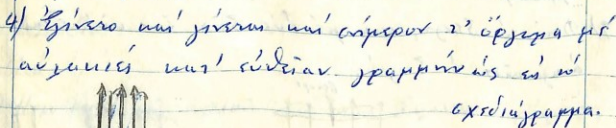 4) Ἐγίνετο καί γίνεται καί σήμερον τ' ὄργωμα μέ
αὐλακιές κατ' εὐθεῖαν γραμμήν ὡς εἰς τό
σχεδιάγραμμα.